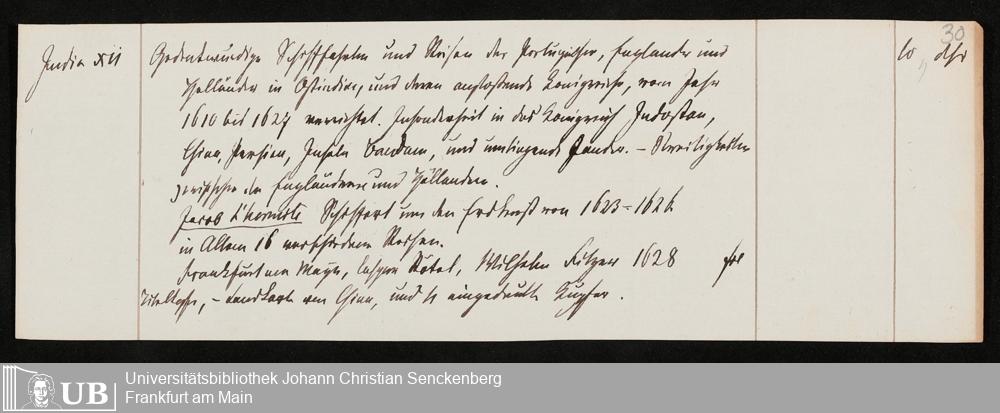 30
India XII Gedenkwürdige Schifffahrten und Reisen der Portugiesen, Engländer und 10 " Thr
Holländer in Ostindien, und deren anstossende Königreiche, vom Jahr
1610 bis 1627 verrichtet. Insonderheit in das Königreich Indostan,
China, Persien, Inseln Bandam, und umliegende Länder. – Streitigkeiten
zwischen den Engländern und Holländern.
Jacob L'hermite Schiffart um den Erdkreiß von 1623=1626
in Allem 16 verschiedene Reisen.
Frankfurt am Mayn, Caspar Rötel, Wilhelm Fitzer 1628 fol
Titelkupfer, – Landkarte von China, und eingedruckte Kupfer.
UB
Universitätsbibliothek Johann Christian Senckenberg
Frankfurt am Main